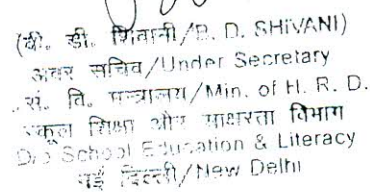 (बी. डी. शिवानी/B. D. SHIVANI)
अवर सचिव/Under Secretary
सं. वि. मन्त्रालय/Min. of H. R. D.
स्कूल शिक्षा और साक्षरता विभाग
D/o School Education & Literacy
नई दिल्ली/New Delhi